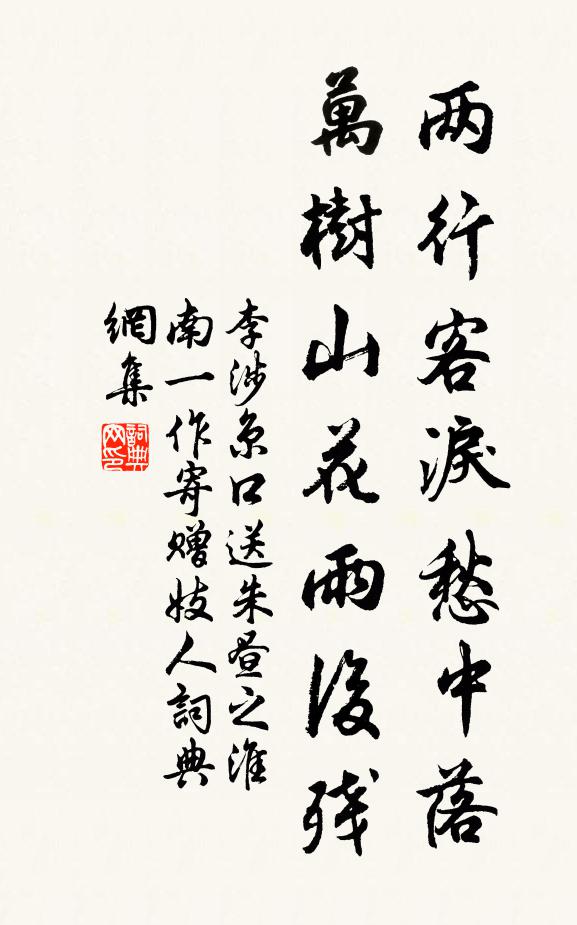 两行客淚愁中落
萬樹山花雨後残
李涉京口送朱昼之淮
南一作寄赠妓人詞典
網集
詞典
网印